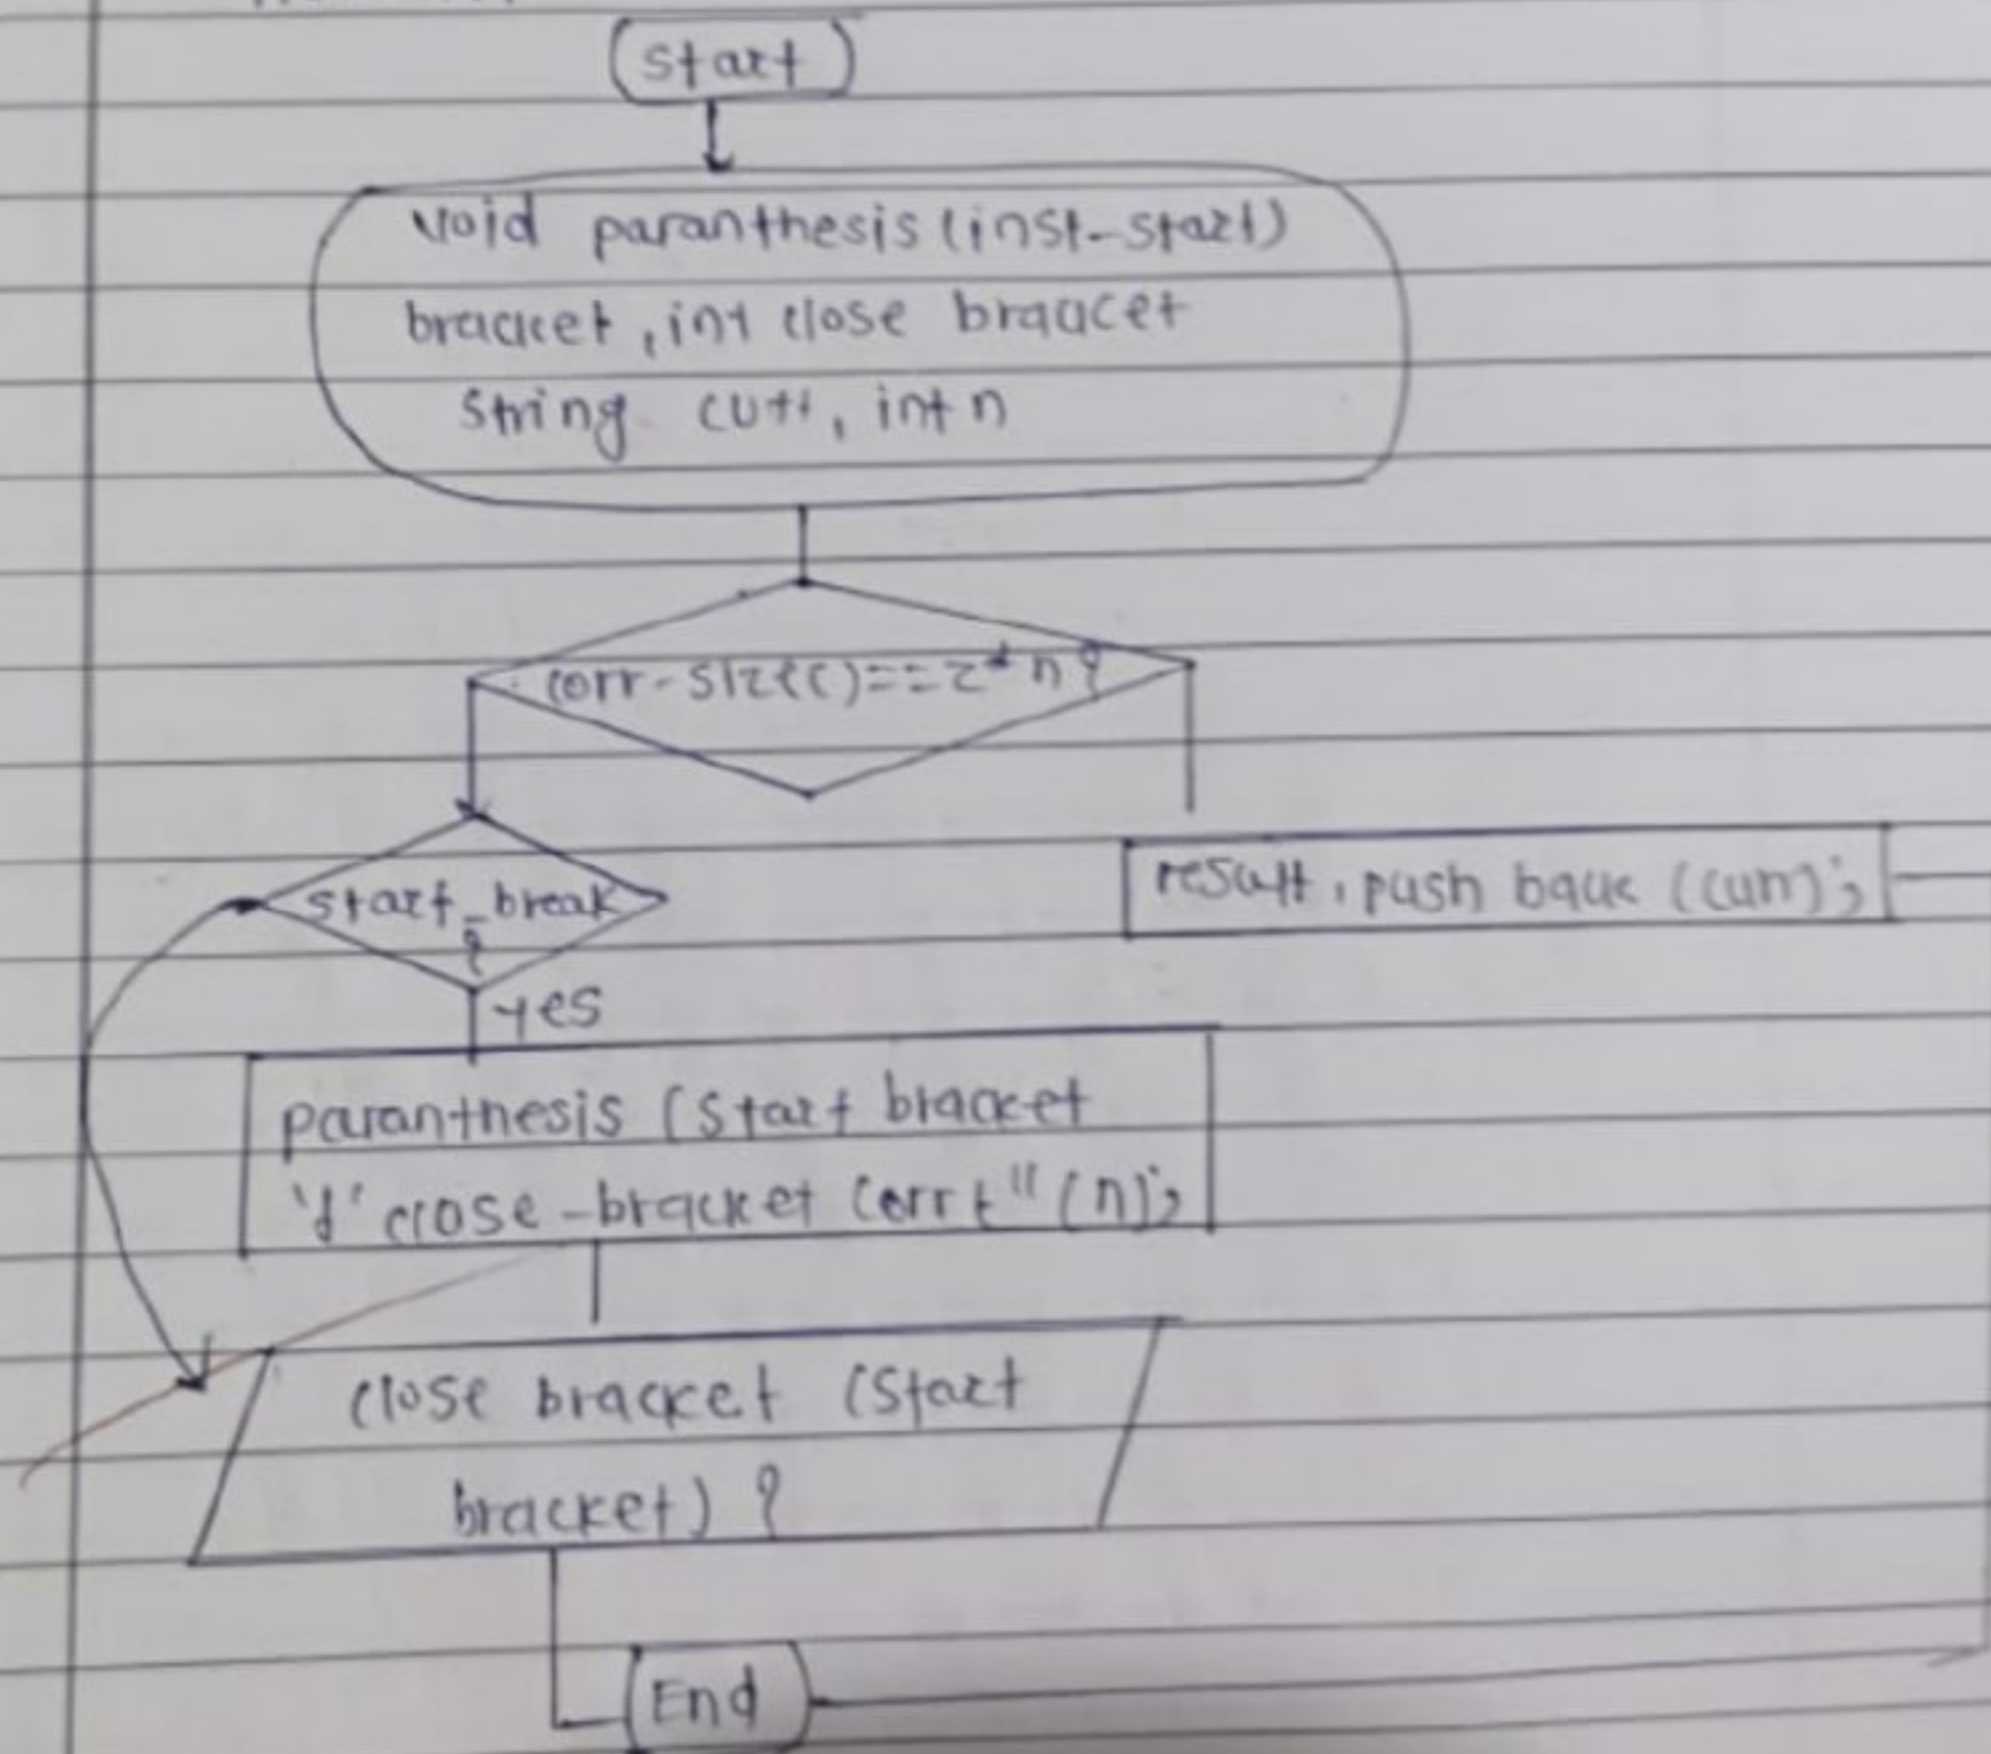 Start
void paranthesis (inst-start)
bracket, int close bracket
String curr, int n
corr-size()==2*n?
start_break
?
result, push back (curr);
yes
paranthesis (Start bracket
close-bracket Corr (n);
close bracket (Start
bracket) ?
End